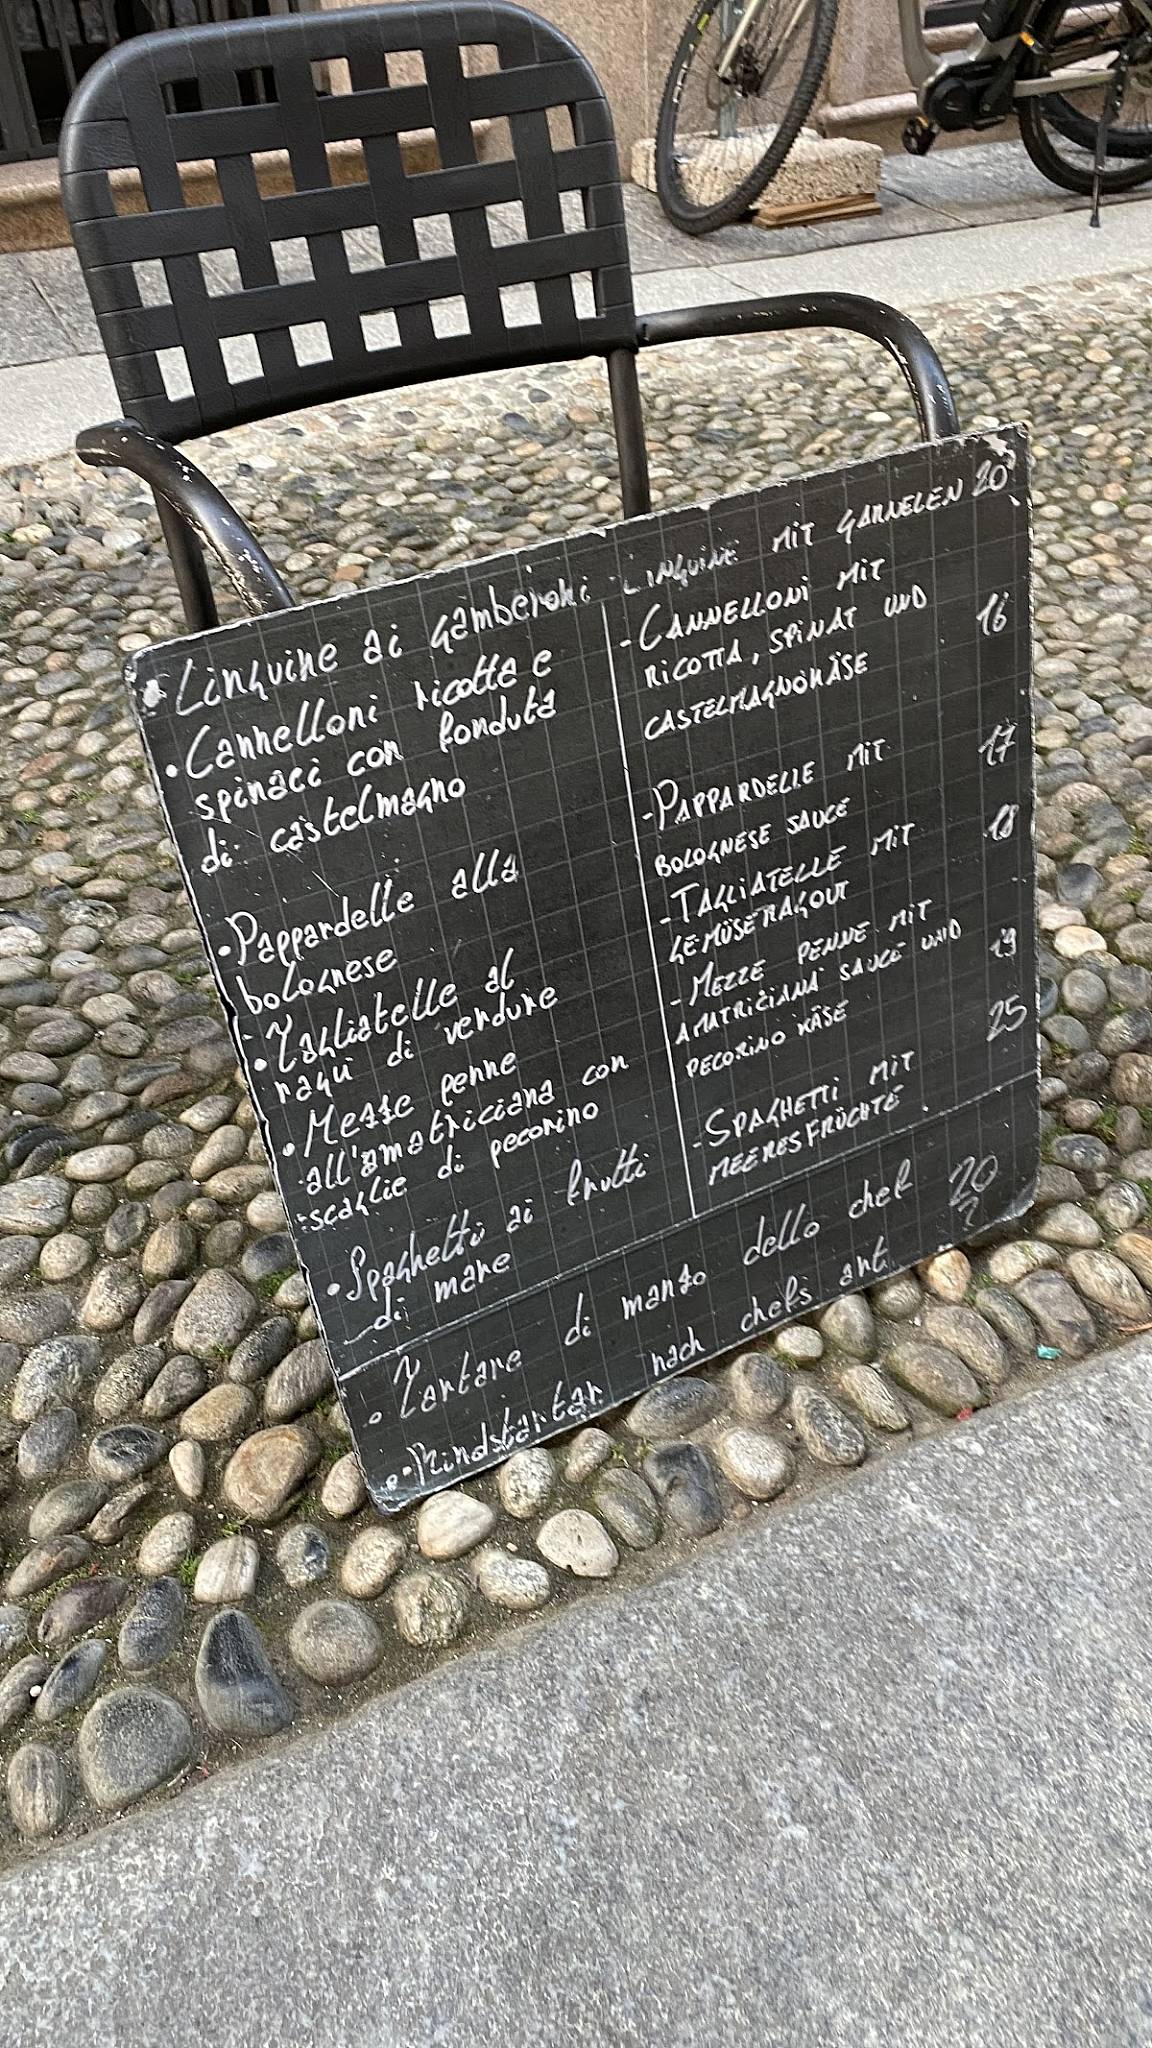 • Linguine ai gamberoni
• Cannelloni ricotta e
spinaci con fonduta
di castelmagno
• Pappardelle alla
bolognese
• Tagliatelle al
ragù di verdure
• Mezze penne
all'amatriciana con
scaglie di pecorino
• Spaghetti ai frutti
di mare
LINGUINE MIT GARNELEN 20
- CANNELLONI MIT
RICOTTA, SPINAT UND 16
CASTELMAGNOKÄSE
- PAPPARDELLE MIT 17
BOLOGNESE SAUCE
- TAGLIATELLE MIT 18
GEMÜSERAGOUT
- MEZZE PENNE MIT
AMATRICIANA SAUCE UND 19
PECORINO KÄSE
- SPAGHETTI MIT 25
MEERESFRÜCHTE
• Tartare di manzo dello chef 20
• Rindstartar nach chefs art